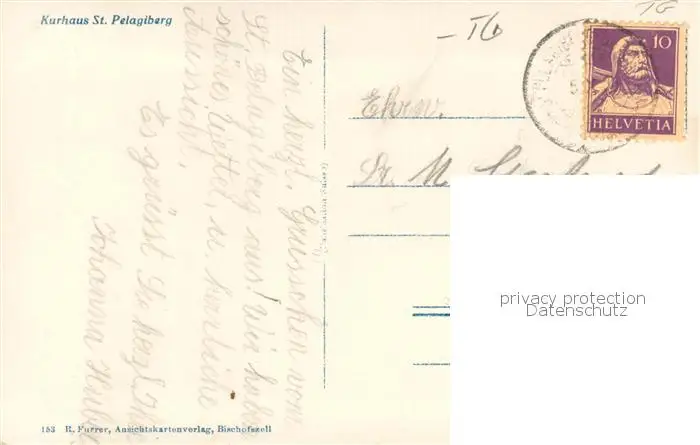 Kurhaus St. Pelagiberg
Ein herzl. Grüsschen vom
St. Pelagiberg aus! Wir haben
schönes Wetter, u. herrliche
Aussicht.
Es grüsst Sie herzl. Ihre
Johanna Huber
TG
- TG
10
HELVETIA
Ehrw.
Sr. M.
privacy protection
Datenschutz
183 R. Furrer, Ansichtskartenverlag, Bischofszell